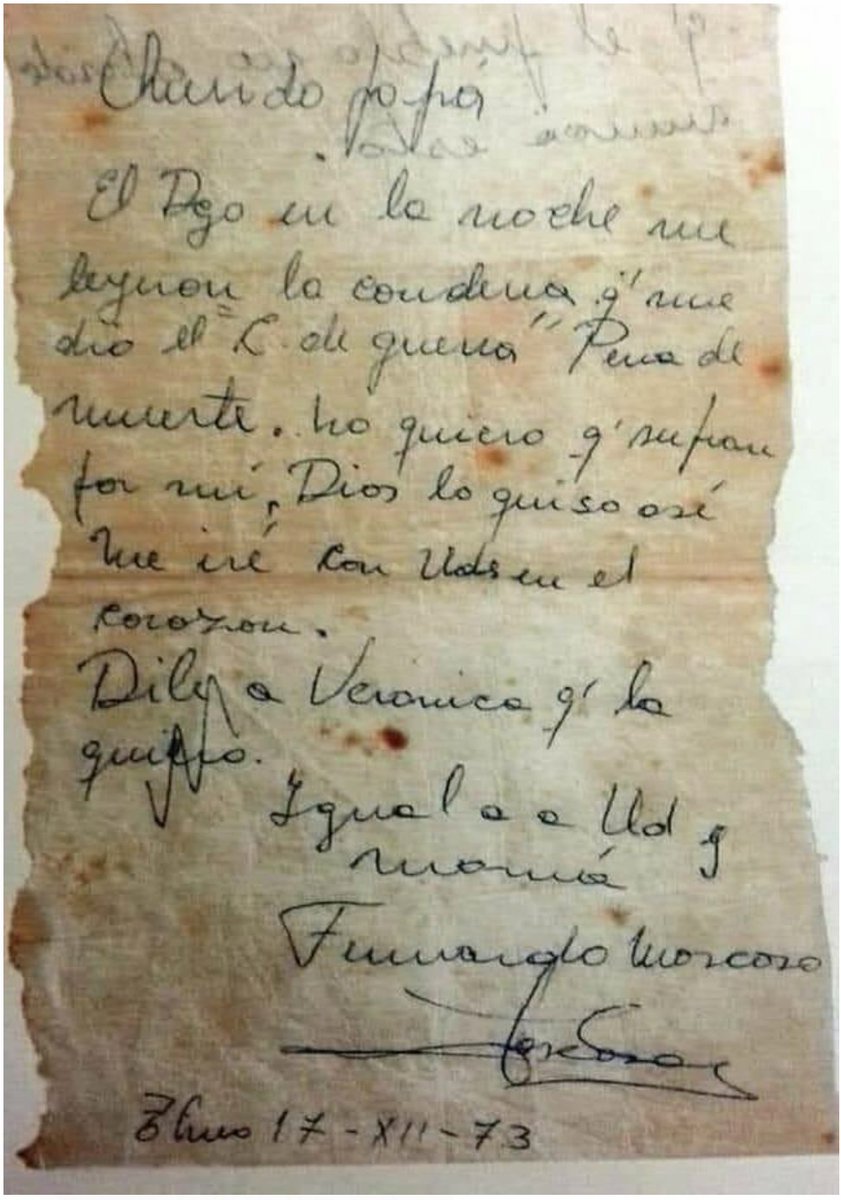 Querido papá
El Dgo en la noche me
leyeron la condena q' me
dio el "C. de guerra" Pena de
muerte. No quiero q' sufran
por mí, Dios lo quiso así
me iré con Uds en el
corazon.
Dile a Veronica q' la
quiero.
Igual a a Ud y
mamá
Fernando Moscoso
17-XII-73